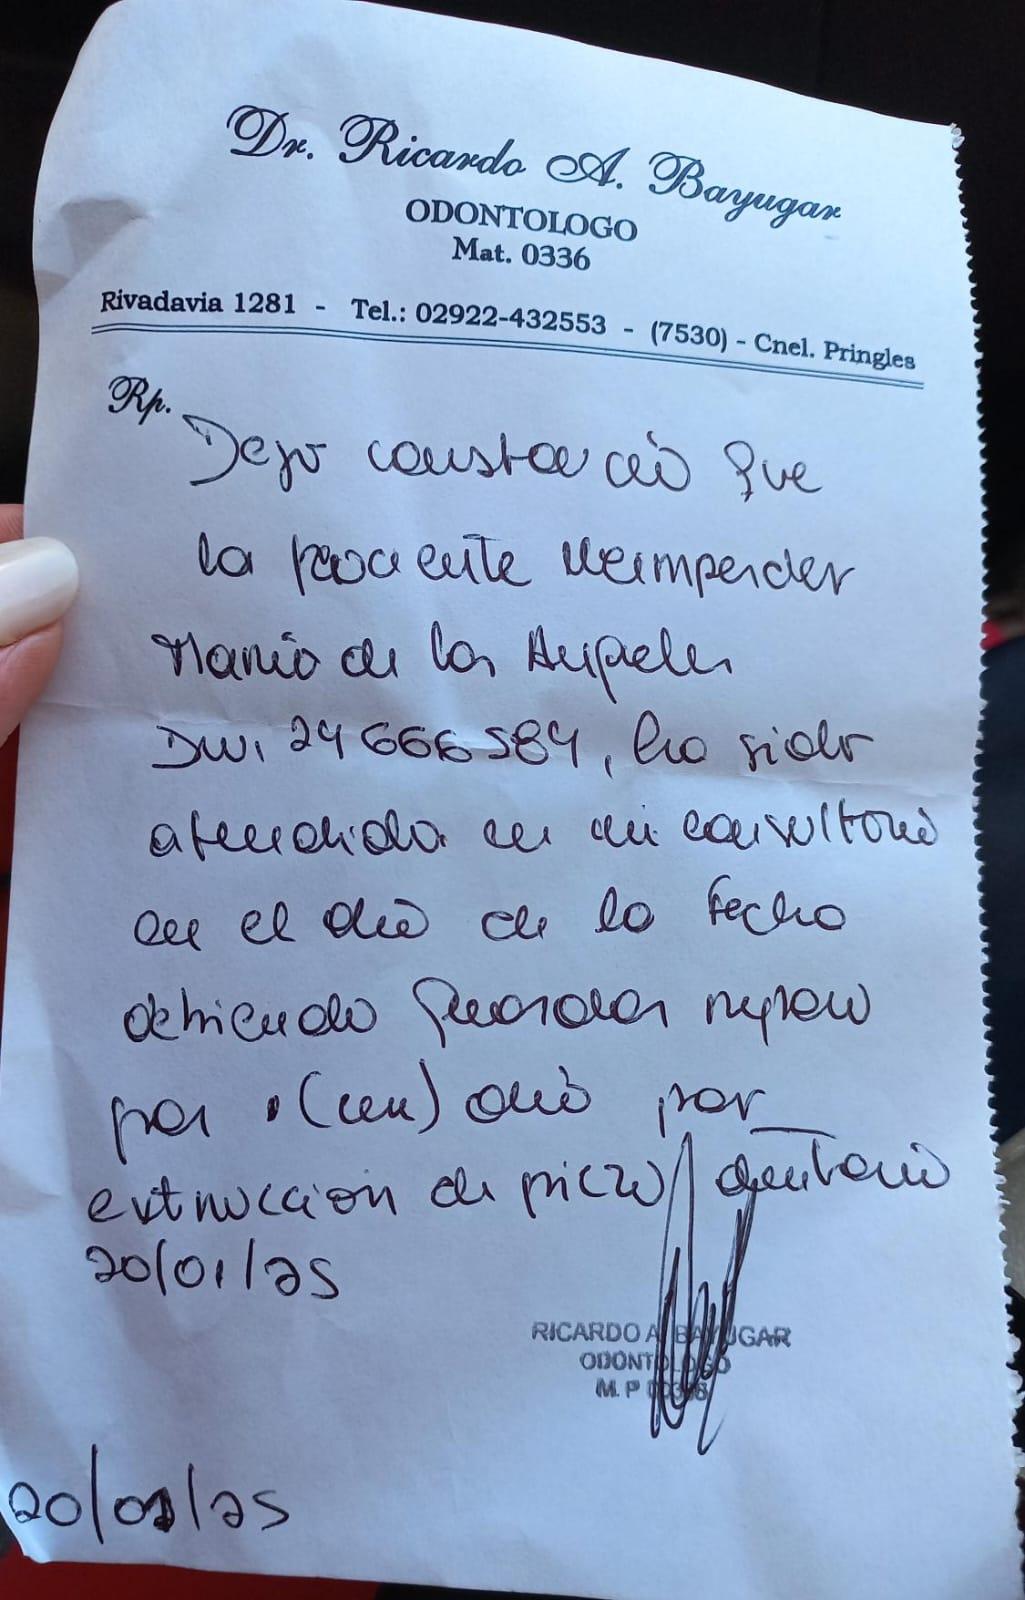 Dr. Ricardo A. Bayugar
ODONTOLOGO
Mat. 0336
Rivadavia 1281 - Tel.: 02922-432553 - (7530) - Cnel. Pringles
Rp.
Dejo constancia que
la paciente
Maria de los Angeles
DNI 24666584, ha sido
atendida en mi consultorio
en el dia de la fecha
debiendo guardar reposo
por (un) dia por
extraccion de pieza dentaria
20/01/25
RICARDO A. BAYUGAR
ODONTOLOGO
M. P
20/01/25